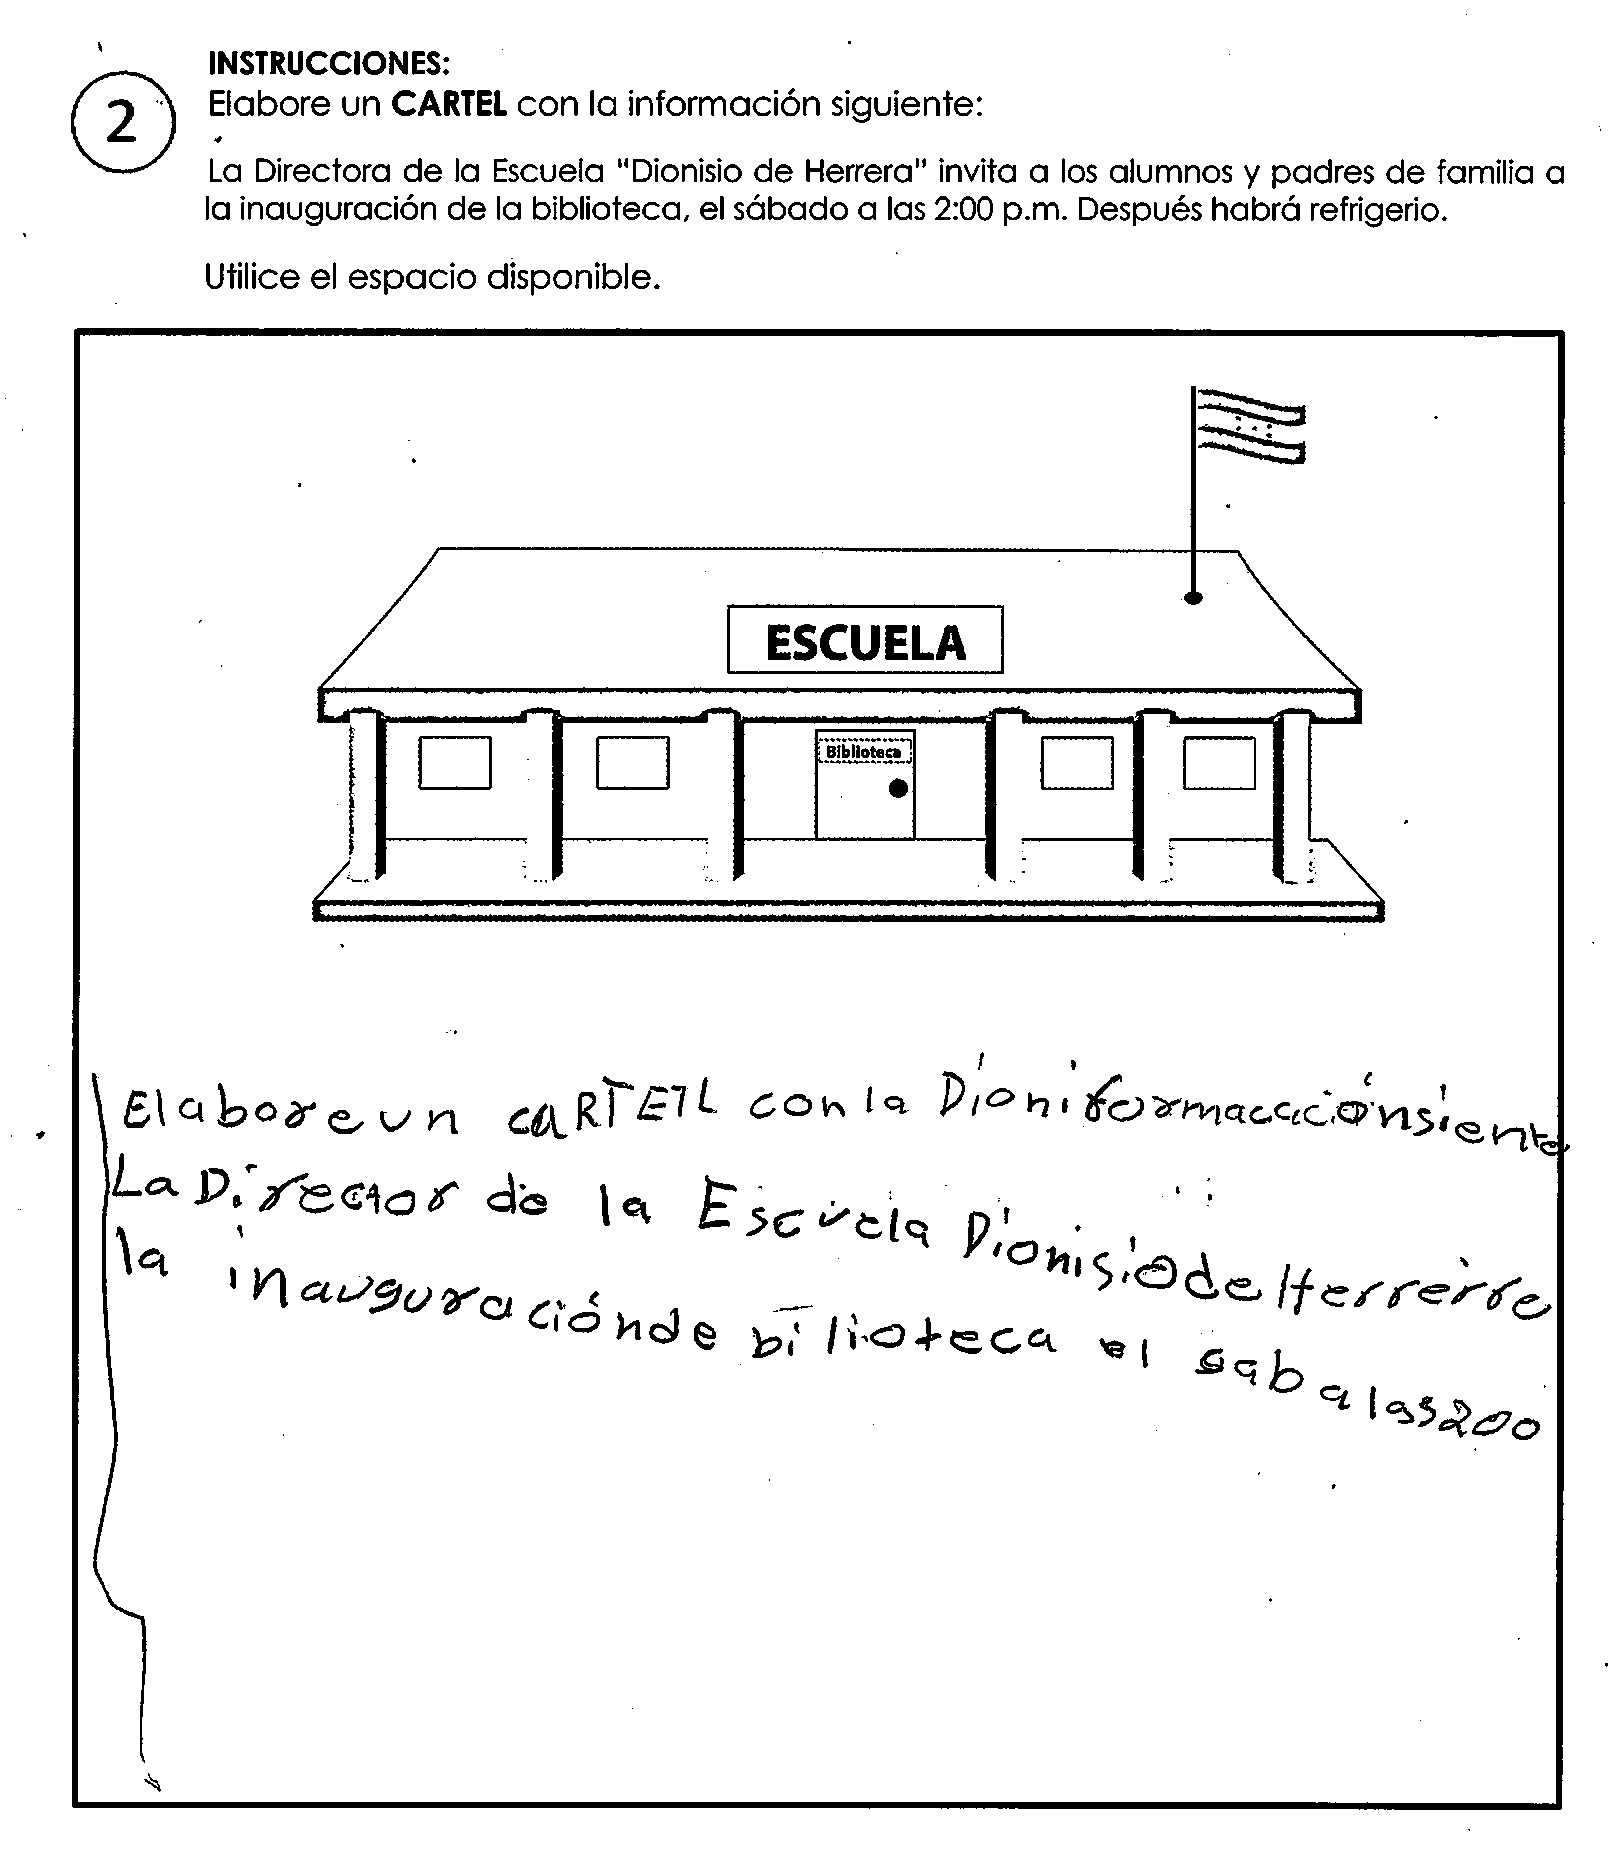 INSTRUCCIONES:
2
Elabore un CARTEL con la información siguiente:
La Directora de la Escuela "Dionisio de Herrera" invita a los alumnos y padres de familia a
la inauguración de la biblioteca, el sábado a las 2:00 p.m. Después habrá refrigerio.
Utilice el espacio disponible.
ESCUELA
Biblioteca
Elabore un caRTETL con la Dioniformacacciónsiente
La Director de la Escuela Dionisio de Herrerre
la inauguración de bilioteca el sab a las 200